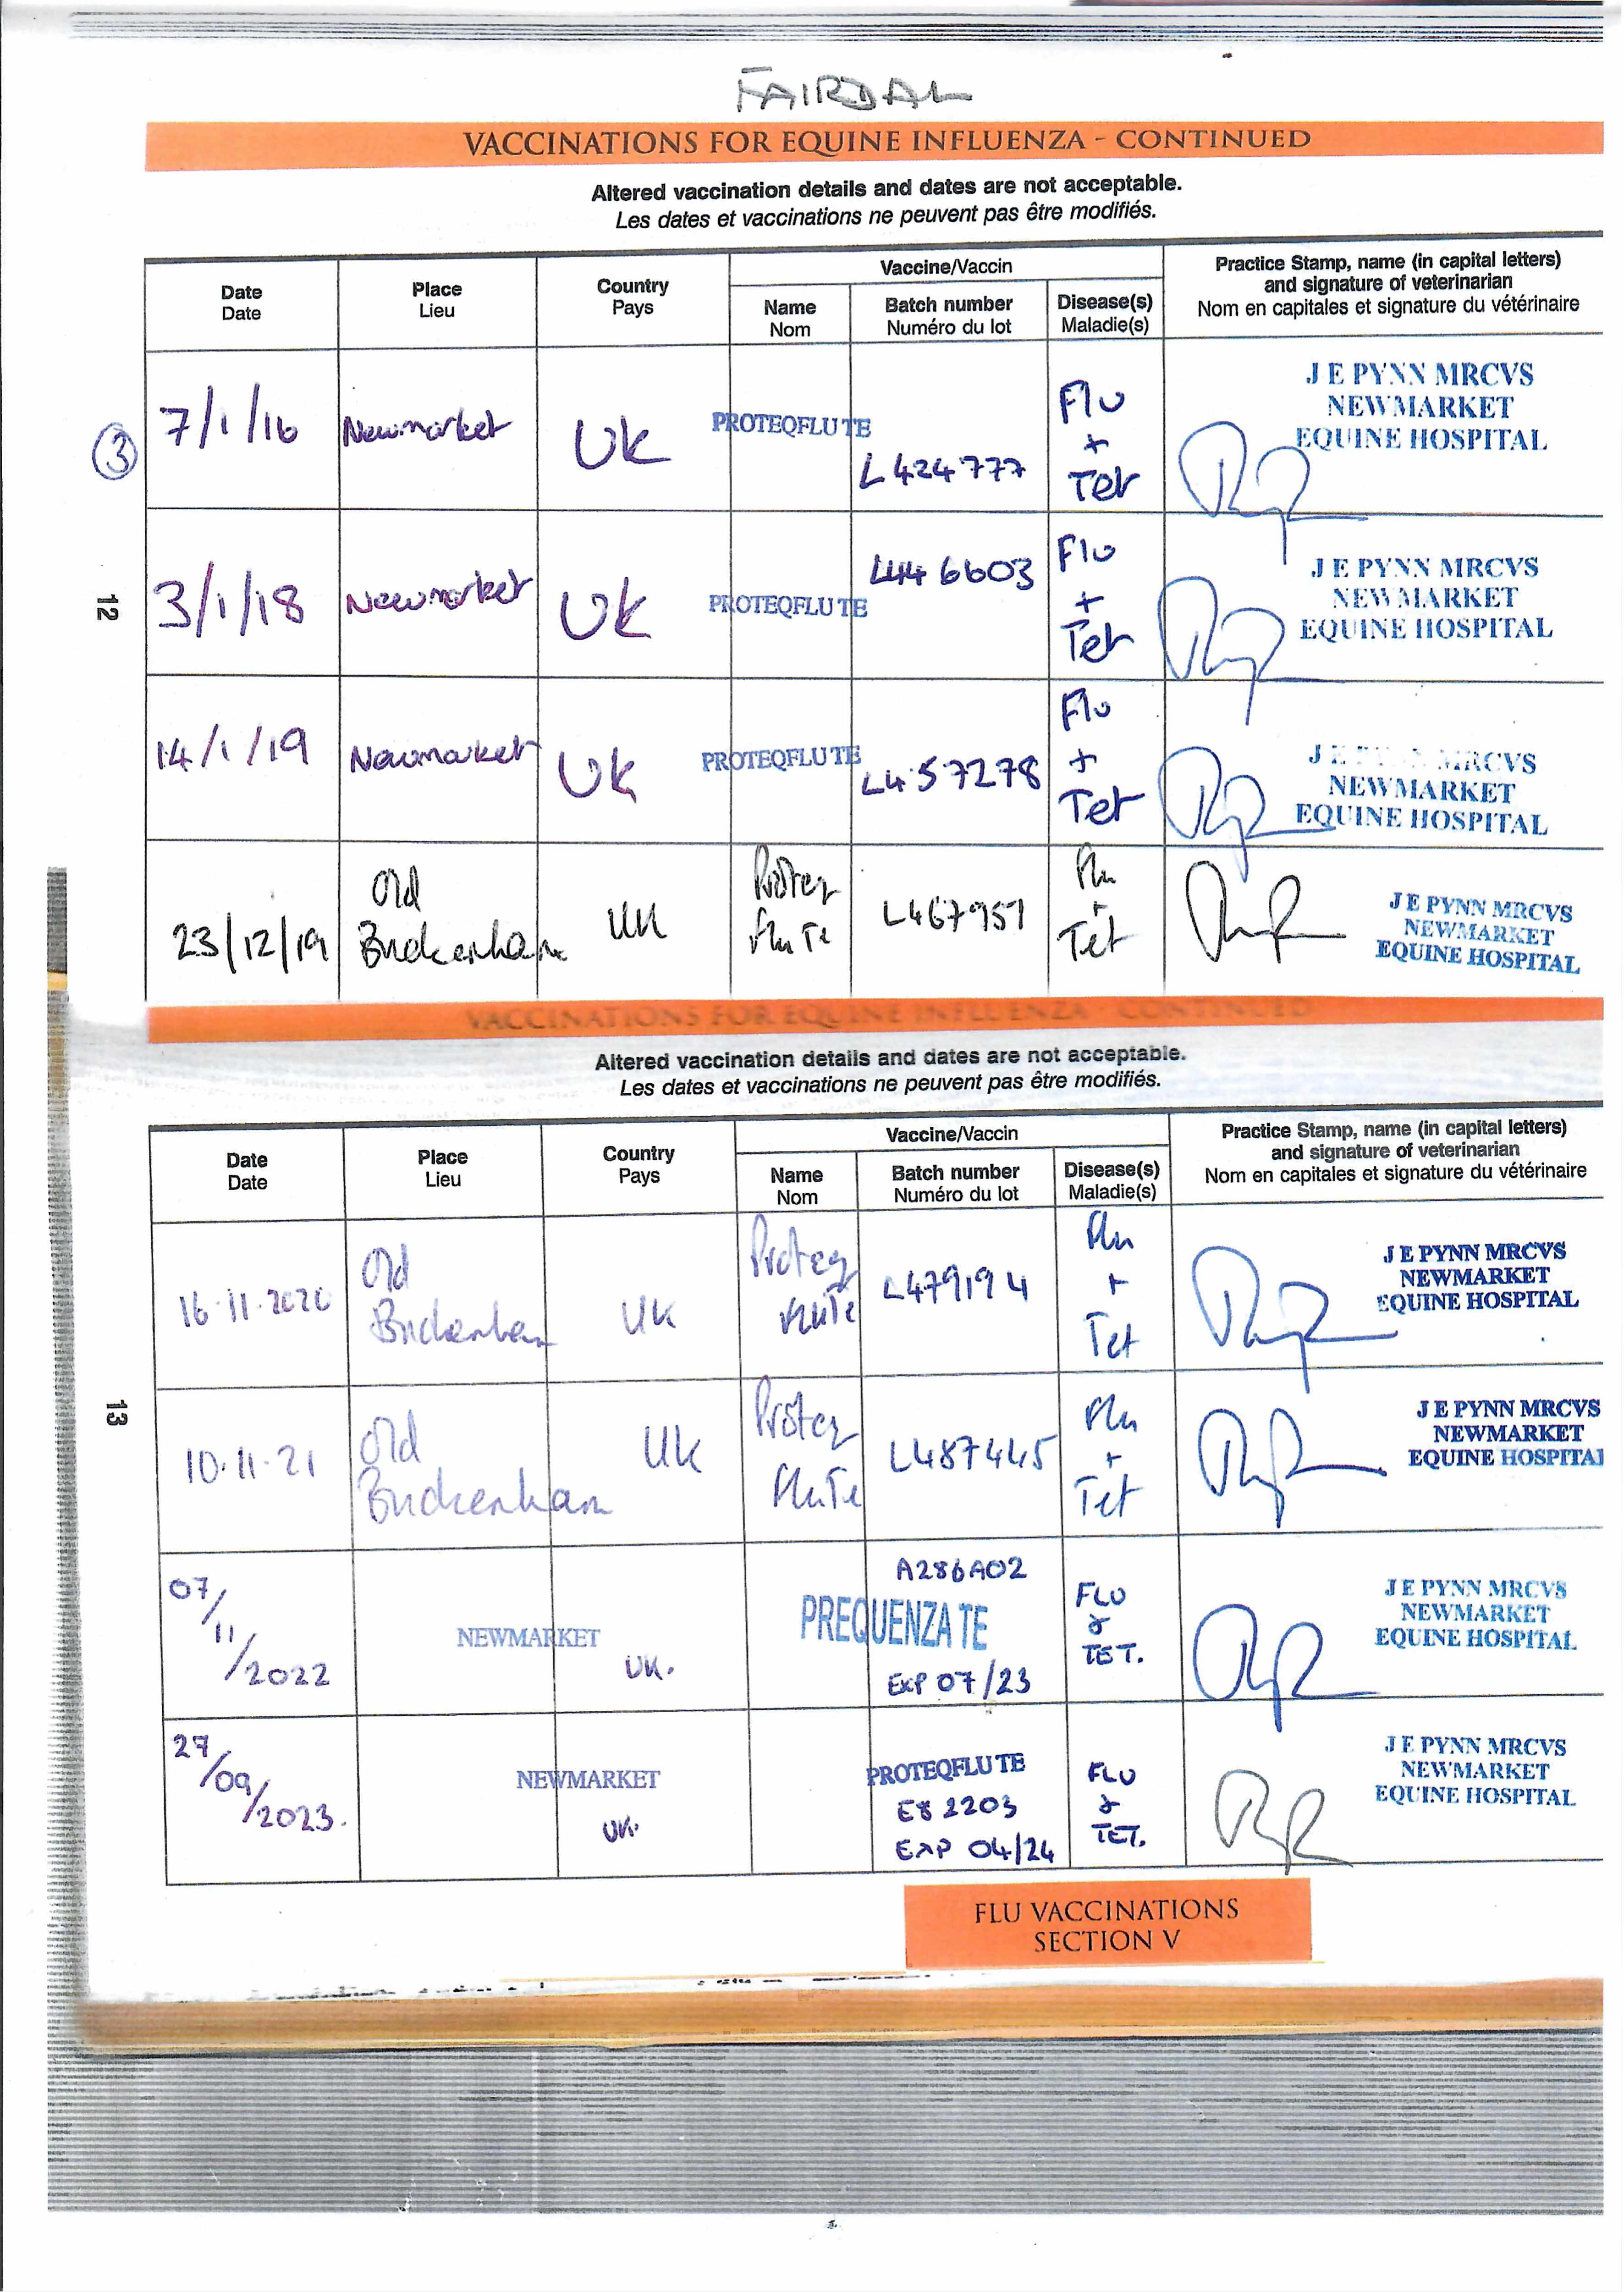 FAIRDAL
VACCINATIONS FOR EQUINE INFLUENZA - CONTINUED
Altered vaccination details and dates are not acceptable.
Les dates et vaccinations ne peuvent pas être modifiés.
Date
Date
Place
Lieu
Country
Pays
Vaccine/Vaccin
Name
Nom
Batch number
Numéro du lot
Disease(s)
Maladie(s)
Practice Stamp, name (in capital letters)
and signature of veterinarian
Nom en capitales et signature du vétérinaire
3
7/1/16
Newmarket
UK
PROTEQFLU TE
L424777
Flu
+
Tet
J E PYNN MRCVS
NEWMARKET
EQUINE HOSPITAL
12
3/1/18
Newmarket
UK
PROTEQFLU TE
L446603
Flu
+
Tet
J E PYNN MRCVS
NEWMARKET
EQUINE HOSPITAL
14/1/19
Newmarket
UK
PROTEQFLU TE
L457278
Flu
+
Tet
J E PYNN MRCVS
NEWMARKET
EQUINE HOSPITAL
23/12/19
Old
Buckenham
UK
Proteq
Flu Te
L467951
Flu
+
Tet
J E PYNN MRCVS
NEWMARKET
EQUINE HOSPITAL
VACCINATIONS FOR EQUINE INFLUENZA - CONTINUED
Altered vaccination details and dates are not acceptable.
Les dates et vaccinations ne peuvent pas être modifiés.
Date
Date
Place
Lieu
Country
Pays
Vaccine/Vaccin
Name
Nom
Batch number
Numéro du lot
Disease(s)
Maladie(s)
Practice Stamp, name (in capital letters)
and signature of veterinarian
Nom en capitales et signature du vétérinaire
16.11.2020
Old
Buckenham
UK
Proteq
FluTe
L479194
Flu
+
Tet
J E PYNN MRCVS
NEWMARKET
EQUINE HOSPITAL
13
10.11.21
Old
Buckenham
UK
Proteq
FluTe
L487445
Flu
+
Tet
J E PYNN MRCVS
NEWMARKET
EQUINE HOSPITAL
07/
11/
2022
NEWMARKET
UK.
PREQUENZA TE
A286A02
EXP 07/23
FLU
&
TET.
J E PYNN MRCVS
NEWMARKET
EQUINE HOSPITAL
27/
09/
2023.
NEWMARKET
UK.
PROTEQFLU TE
E82203
EXP 04/24
FLU
&
TET.
J E PYNN MRCVS
NEWMARKET
EQUINE HOSPITAL
FLU VACCINATIONS
SECTION V